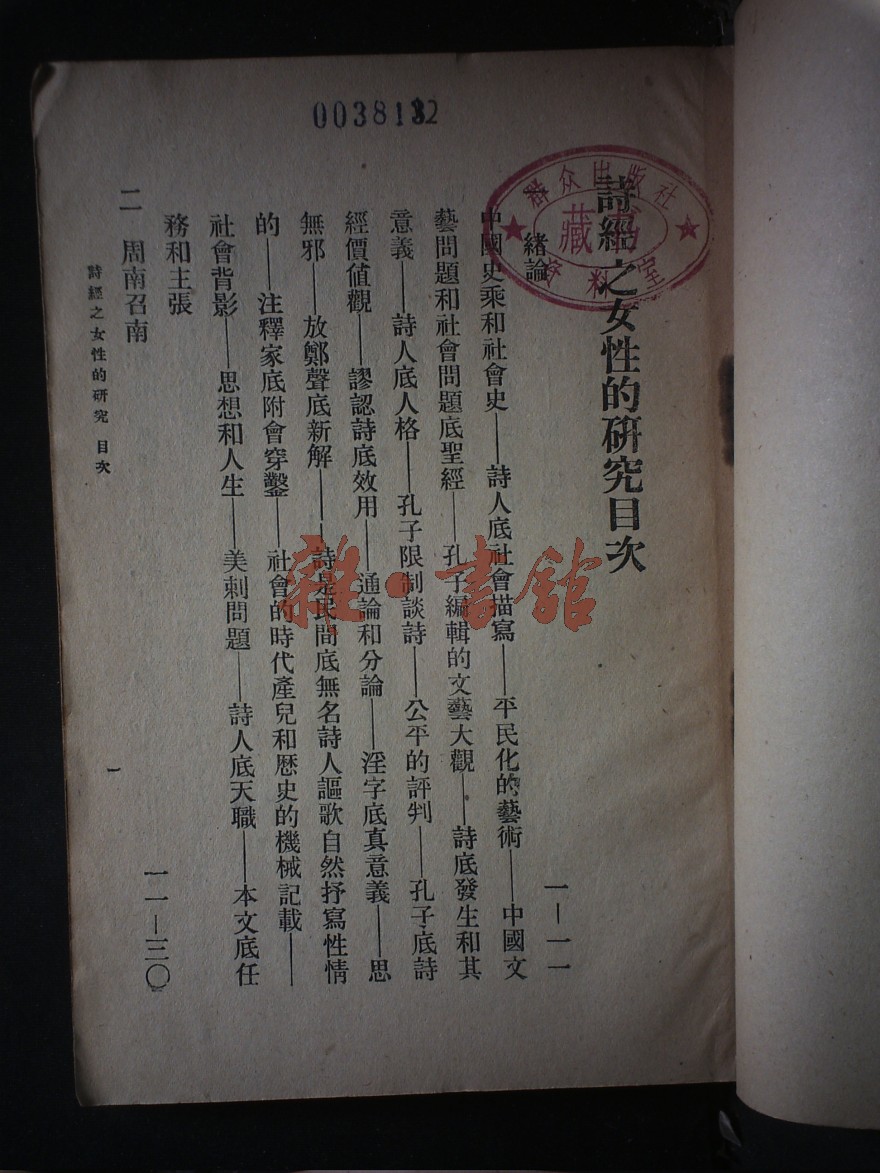 0038132
群众出版社
藏书
资料室
詩經之女性的研究目次
一 緒論 一－一一
中國史乘和社會史——詩人底社會描寫——平民化的藝術——中國文
藝問題和社會問題底聖經——孔子編輯的文藝大觀——詩底發生和其
意義——詩人底人格——孔子限制談詩——公平的評判——孔子底詩
經價值觀——謬認詩底效用——通論和分論——淫字底真意義——思
無邪——放鄭聲底新解——詩是民間底無名詩人謳歌自然抒寫性情
的——注釋家底附會穿鑿——社會的時代產兒和歷史的機械記載——
社會背影——思想和人生——美刺問題——詩人底天職——本文底任
務和主張
二 周南召南 一一－三〇
詩經之女性的研究 目次
一
雜·書館